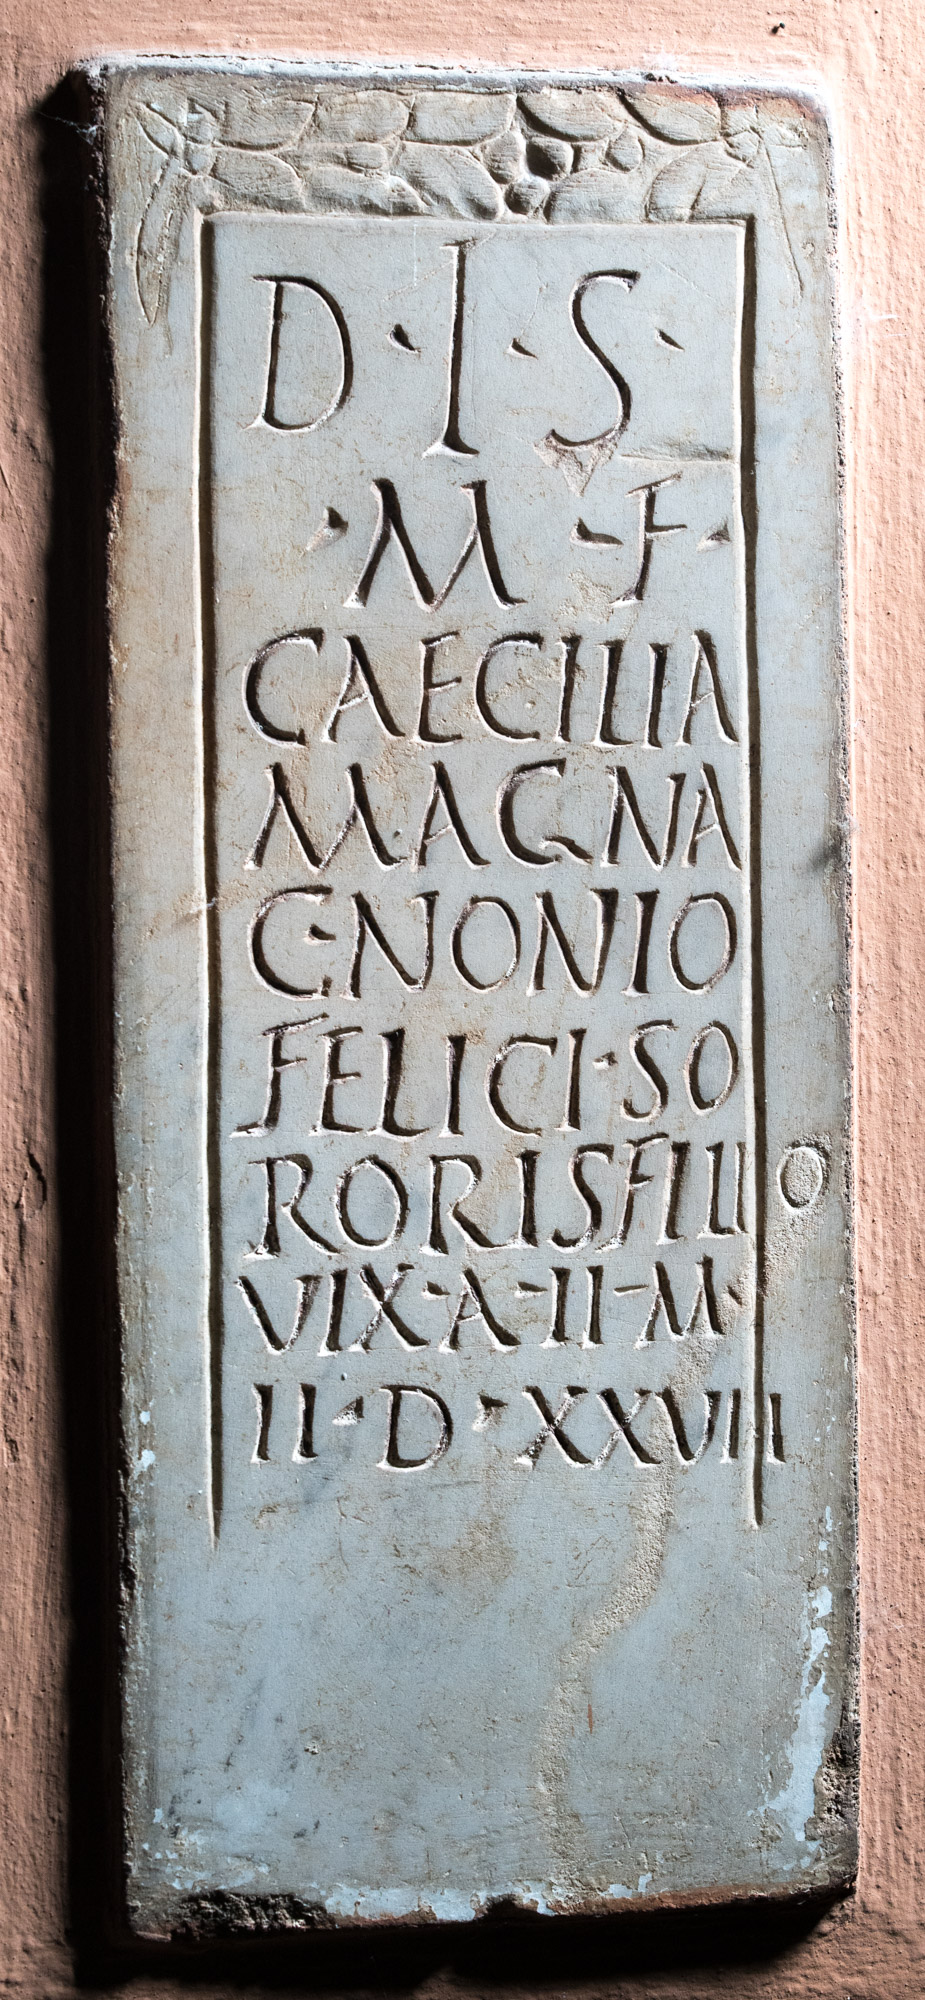 D · I · S ·
· M · F ·
CAECILIA
MAGNA
C · NONIO
FELICI · SO
RORIS FILIO
VIX · A · II · M ·
II · D · XXVIII